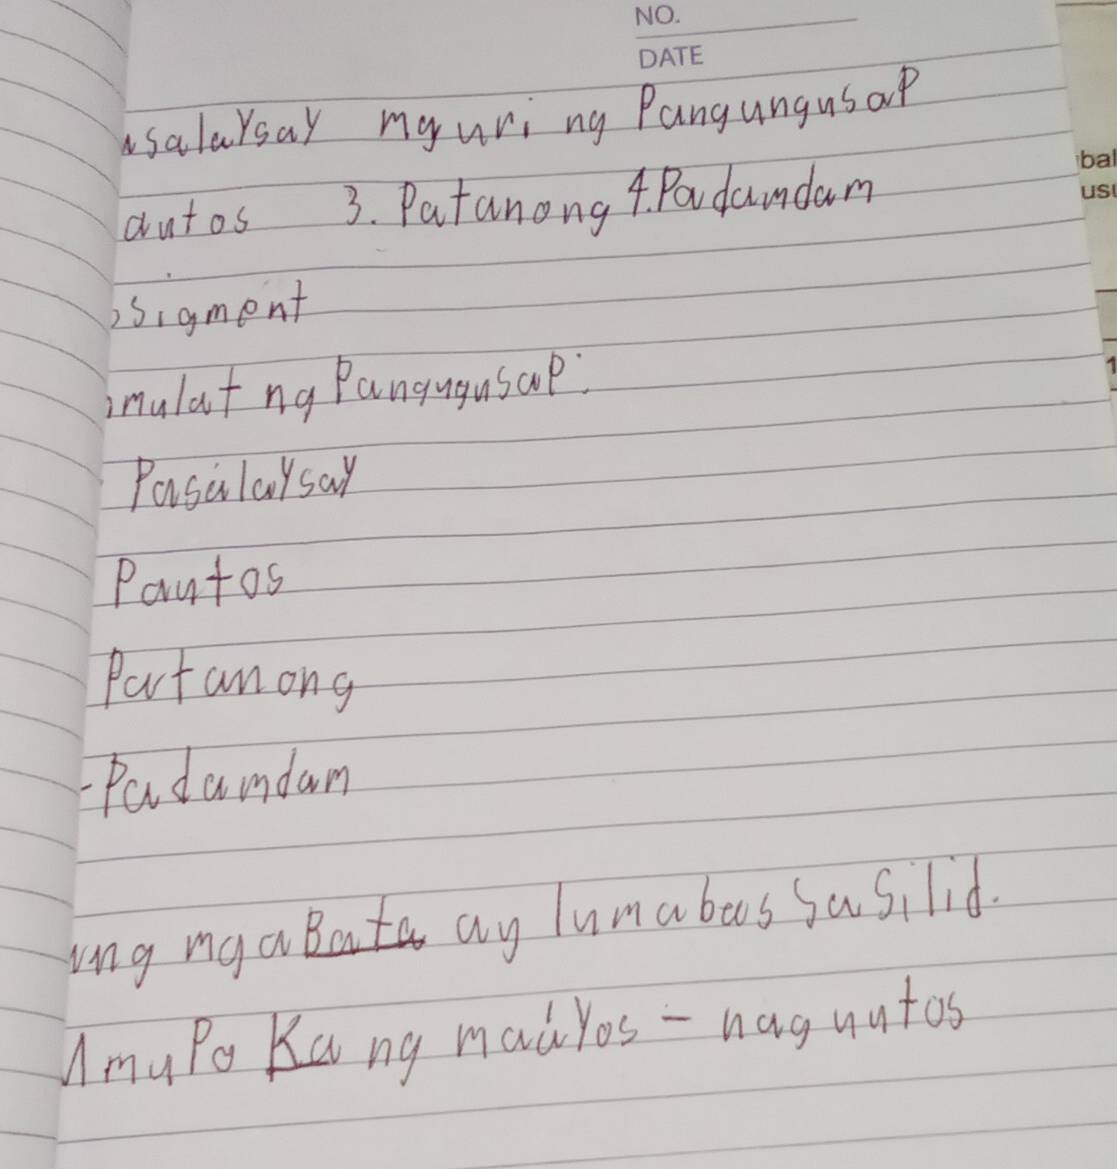 NO.
DATE
salaysay mg uri ng Pangungusap
autos 3. Patanong 4. Padamdam
sigment
mulat ng Pangugusap:
Pasalaysay
Pautos
Patanong
- Padamdam
ang mga Bata ay lumabas sa silid.
umupo Ka ng maayos - naguutos
bal
usu
1